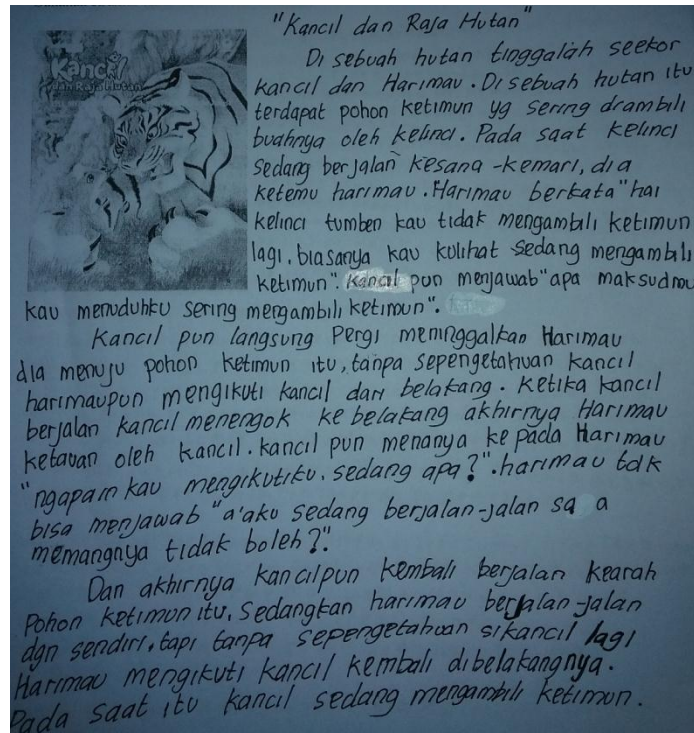 "Kancil dan Raja Hutan"
Kancil
dan Raja Hutan
Di sebuah hutan tinggalah seekor
kancil dan Harimau. Di sebuah hutan itu
terdapat pohon ketimun yg sering diambili
buahnya oleh kelinci. Pada saat kelinci
sedang berjalan kesana-kemari, dia
ketemu harimau. Harimau berkata "hai
kelinci tumben kau tidak mengambili ketimun
lagi, biasanya kau kulihat sedang mengambili
ketimun". Kancil pun menjawab "apa maksudmu
kau menuduhku sering mengambili ketimun".
Kancil pun langsung pergi meninggalkan Harimau
dia menuju pohon ketimun itu, tanpa sepengetahuan kancil
harimaupun mengikuti kancil dari belakang. Ketika kancil
berjalan kancil menengok ke belakang akhirnya Harimau
ketauan oleh kancil. kancil pun menanya ke pada Harimau
"ngapain kau mengikutiku. sedang apa?". harimau tdk
bisa menjawab "a'aku sedang berjalan-jalan sa a
memangnya tidak boleh?".
Dan akhirnya kancilpun kembali berjalan kearah
pohon ketimun itu, sedangkan harimau berjalan-jalan
dgn sendiri, tapi tanpa sepengetahuan sikancil lagi
Harimau mengikuti kancil kembali dibelakangnya.
Pada saat itu kancil sedang mengambili ketimun.